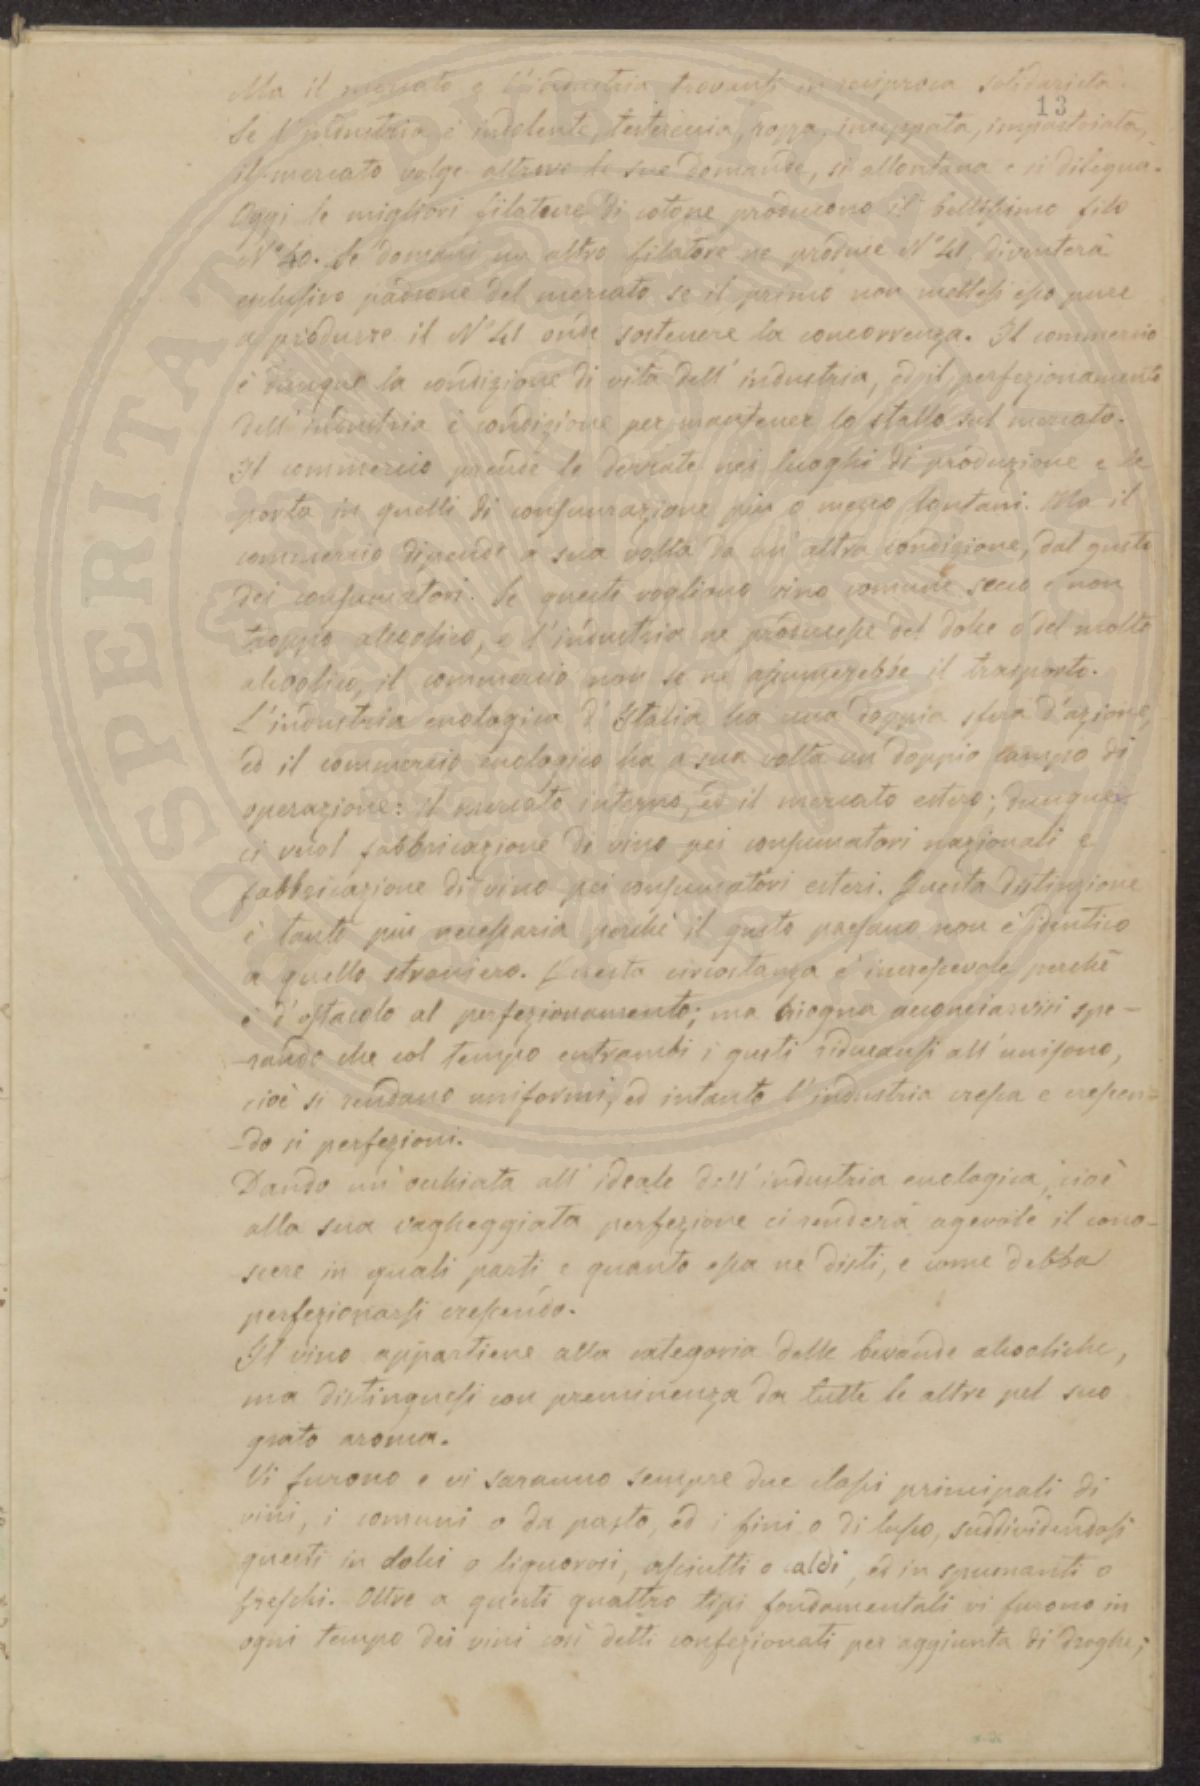 13
Ma il mercato e l'industria trovansi in reciproca solidarietà.
Se l'industria è indolente, testereccia, rozza, inceppata, impastoiata,
il mercato volge altrove le sue domande, si allontana e si dilegua.
Oggi le migliori filature di cotone producono il bellissimo filo
N° 40. Se domani un altro filatore ne produce N° 41, diventerà
esclusivo padrone del mercato se il primo non mettesi esso pure
a produrre il N° 41 onde sostenere la concorrenza. Il commercio
è dunque la condizione di vita dell'industria, ed il perfezionamento
dell'industria è condizione per mantener lo stallo sul mercato.
Il commercio prende le derrate nei luoghi di produzione e le
porta in quelli di consumazione più o meno lontani. Ma il
commercio dipende a sua volta da un'altra condizione, dal gusto
dei consumatori. Se questi vogliono vino comune secco e non
troppo alcoolico, e l'industria ne producesse del dolce o del molto
alcoolico, il commercio non se ne assumerebbe il trasporto.
L'industria enologica d'Italia ha una doppia sfera d'azione,
ed il commercio enologico ha a sua volta un doppio campo di
operazione: il mercato interno, ed il mercato estero; dunque
ci vuol fabbricazione di vino pei consumatori nazionali e
fabbricazione di vino pei consumatori esteri. Questa distinzione
è tanto più necessaria perchè il gusto paesano non è identico
a quello straniero. Questa circostanza è increscevole perchè
è d'ostacolo al perfezionamento; ma bisogna acconciarvisi spe-
-rando che col tempo entrambi i gusti riducansi all'unisono,
cioè si rendano uniformi, ed intanto l'industria cresca e crescen-
-do si perfezioni.
Dando un'occhiata all'ideale dell'industria enologica, cioè
alla sua vagheggiata perfezione ci renderà agevole il cono-
scere in quali parti e quanto essa ne disti, e come debba
perfezionarsi crescendo.
Il vino appartiene alla categoria delle bevande alcooliche,
ma distinguesi con preminenza da tutte le altre pel suo
grato aroma.
Vi furono e vi saranno sempre due classi principali di
vini, i comuni o da pasto, ed i fini o di lusso, suddividendosi
questi in dolci o liquorosi, asciutti o caldi, ed in spumanti o
freschi. Oltre a questi quattro tipi fondamentali vi furono in
ogni tempo dei vini così detti confezionati per aggiunta di droghe;